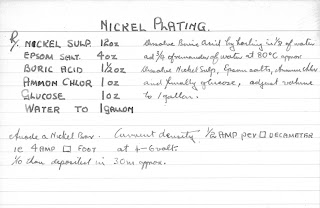 NICKEL PLATING.
℞ NICKEL SULP. 12oz Dissolve Buric Acid by heating in ¼ of water
EPSOM SALT. 4oz ad ¾ of remainder of water at 80°C approx
BURIC ACID 1½oz Dissolve Nickel Sulp, Epsom salts, Ammon Chlor
AMMON CHLOR 1oz and finally glucose, adjust volume
GLUCOSE 1oz to 1 gallon.
WATER TO 1 GALLON
Anode a Nickel Bar. Current density ½ AMP per □ DECAMETER
ie 4 AMP □ FOOT at 4-6 volts
thou deposited in 30m approx.